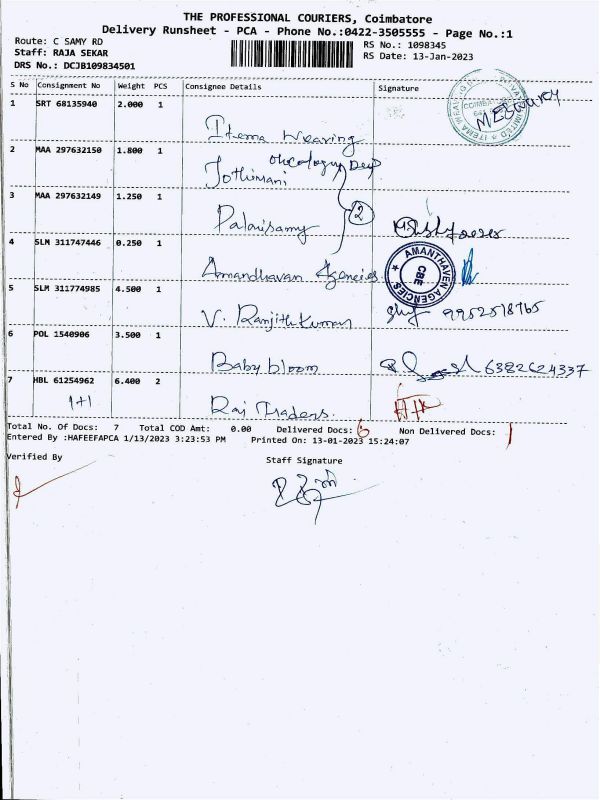 THE PROFESSIONAL COURIERS, Coimbatore
Delivery Runsheet - PCA - Phone No.:0422-3505555 - Page No.:1
Route: C SAMY RD
RS No.: 1098345
Staff: RAJA SEKAR
RS Date: 13-Jan-2023
DRS No.: DCJB109834501
S No Consignment No Weight PCS Consignee Details Signature
1 SRT 68135940 2.000 1
Itema Weaving
2 MAA 297632150 1.800 1
Oncology Dep
Jothimani
3 MAA 297632149 1.250 1
2
Palanisamy
4 SLM 311747446 0.250 1
AMANTHAVEN AGENCIES CBE
Amandhavan Agencies
5 SLM 311774985 4.500 1
V. Ranjith Kumar 9952518765
6 POL 1540906 3.500 1
Baby bloom 6382624337
7 HBL 61254962 6.400 2
1+1
Raj Traders
Total No. Of Docs: 7 Total COD Amt: 0.00 Delivered Docs: 6 Non Delivered Docs: 1
Entered By :HAFEEFAPCA 1/13/2023 3:23:53 PM Printed On: 13-01-2023 15:24:07
Verified By
Staff Signature